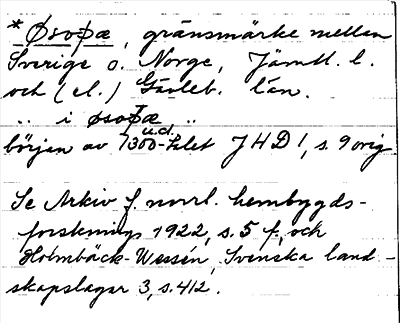 * Øsoþæ, gränsmärke mellan
Sverige o. Norge, Jämtl. l.
och (el.) Gävleb. län.
" i øsoþæ "
u.d.
början av 1300-talet JHD 1, s. 9 orig
Se Arkiv f. norrl. hembygds-
forskning 1922, s. 5 f, och
Holmbäck-Wessén, Svenska land-
skapslagar 3, s. 412.